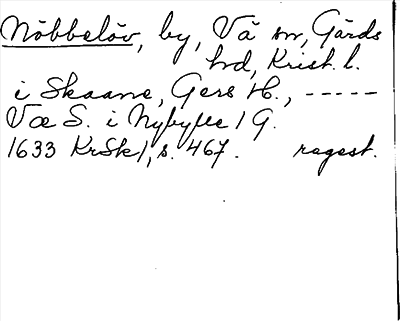 Nöbbelöv, by, Vä sn, Gärds
hrd, Krist. l.
i Skaane, Gers H., -----
Væ S. i Nybylle / G.
1633 KrSk/, s. 467. ragest.